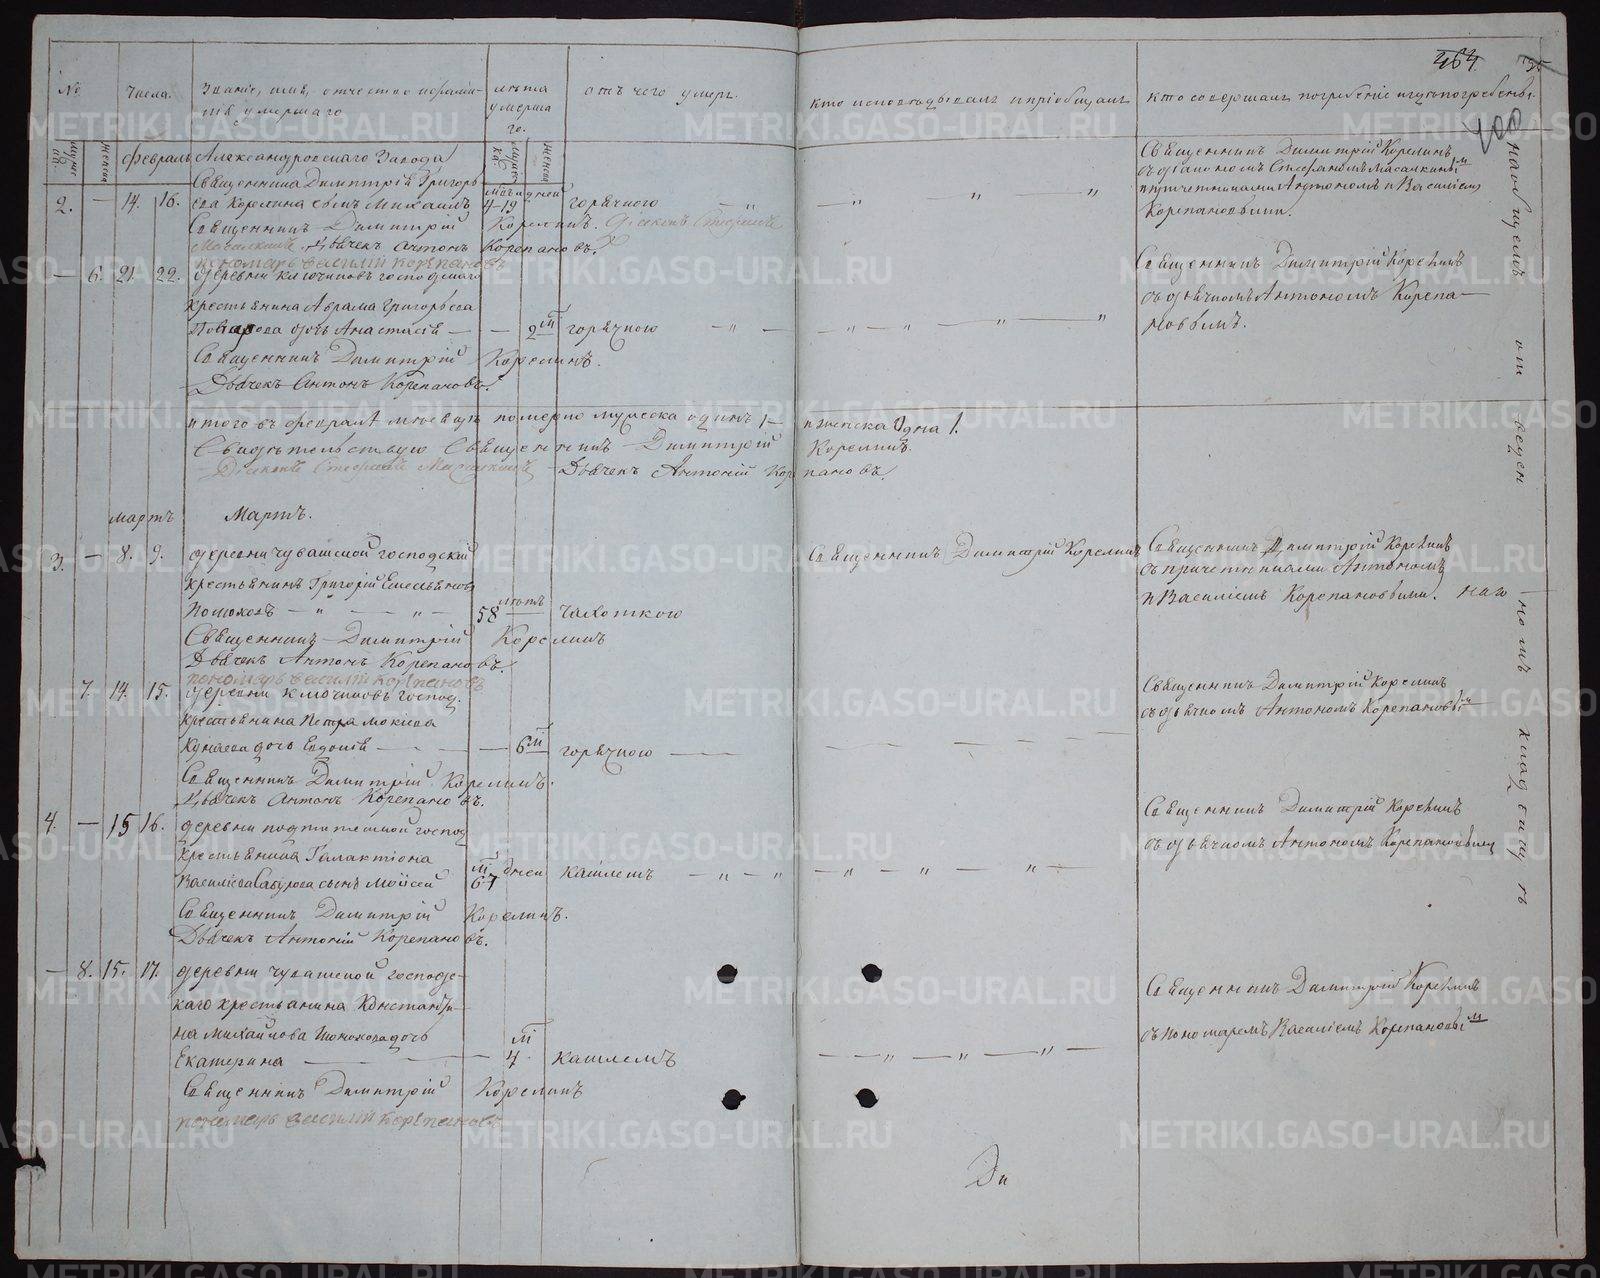 464
400
№
Числа.
Званіе, имя, отчество и фамилія умершаго
лѣта умершаго.
отъ чего умеръ.
кто исповѣдывалъ и пріобщалъ
кто совершалъ погребеніе и гдѣ погребены.
Февраль Александровскаго Завода
2. — 14. 16. Священника Димитрія Григорьева Корелина сынъ Михаилъ
4 19 дней
горячкою
Священникъ Димитрій Корелинъ
съ діакономъ Стефаномъ
и причетниками Антономъ и Василіемъ
Корепановыми.
Священникъ Димитрій Корелинъ. Діаконъ Стефанъ
Дьячекъ Антонъ Корепановъ.
пономарь Василій Корепановъ
— 6. 21. 22. деревни Ключиковъ господскаго
крестьянина Аврама Григорьева
дочь Анастасія — — 2 м горячкою
Священникъ Димитрій Корелинъ
съ дьячкомъ Антономъ Корепа-
новымъ.
Священникъ Димитрій Корелинъ.
Дьячекъ Антонъ Корепановъ.
Итого въ февралѣ мѣсяцѣ померло мужеска одинъ 1 — и женска одна 1.
Свидѣтельствую Священникъ Димитрій Корелинъ.
Діаконъ Стефанъ
Дьячекъ Антоній Корепановъ.
мартъ
Мартъ.
3. — 8. 9. деревни Чувашской господскій
крестьянинъ Григорій Емельяновъ
58 лѣтъ чахоткою
Священникъ Димитрій Корелинъ
Священникъ Димитрій Корелинъ
съ причетниками Антономъ
и Василіемъ Корепановыми.
Священникъ Димитрій Корелинъ
Дьячекъ Антонъ Корепановъ.
пономарь Василій Корепановъ
7. 14. 15. деревни Ключиковъ господ.
крестьянина Петра Мокіева
дочь Евдокія — — 6 м горячкою
Священникъ Димитрій Корелинъ
съ дьячкомъ Антономъ Корепановым
Священникъ Димитрій Корелинъ.
Дьячекъ Антонъ Корепановъ.
4. — 15 16. деревни господ
крестьянина Галактіона
Василіева сынъ Моисей
6 м 7 дней кашлемъ
Священникъ Димитрій Корелинъ
съ дьячкомъ Антономъ Корепановымъ
Священникъ Димитрій Корелинъ.
Дьячекъ Антоній Корепановъ.
— 8. 15. 17. деревни Чувашской господс-
каго крестьянина Константи-
на Михайлова дочь
Екатерина — 4 м кашлемъ
Священникъ Димитрій Корелинъ
съ пономаремъ Василіемъ Корепановым
Священникъ Димитрій Корелинъ
пономарь Василій Корепановъ
на общемъ отведенномъ кладбищѣ
METRIKI.GASO-URAL.RU